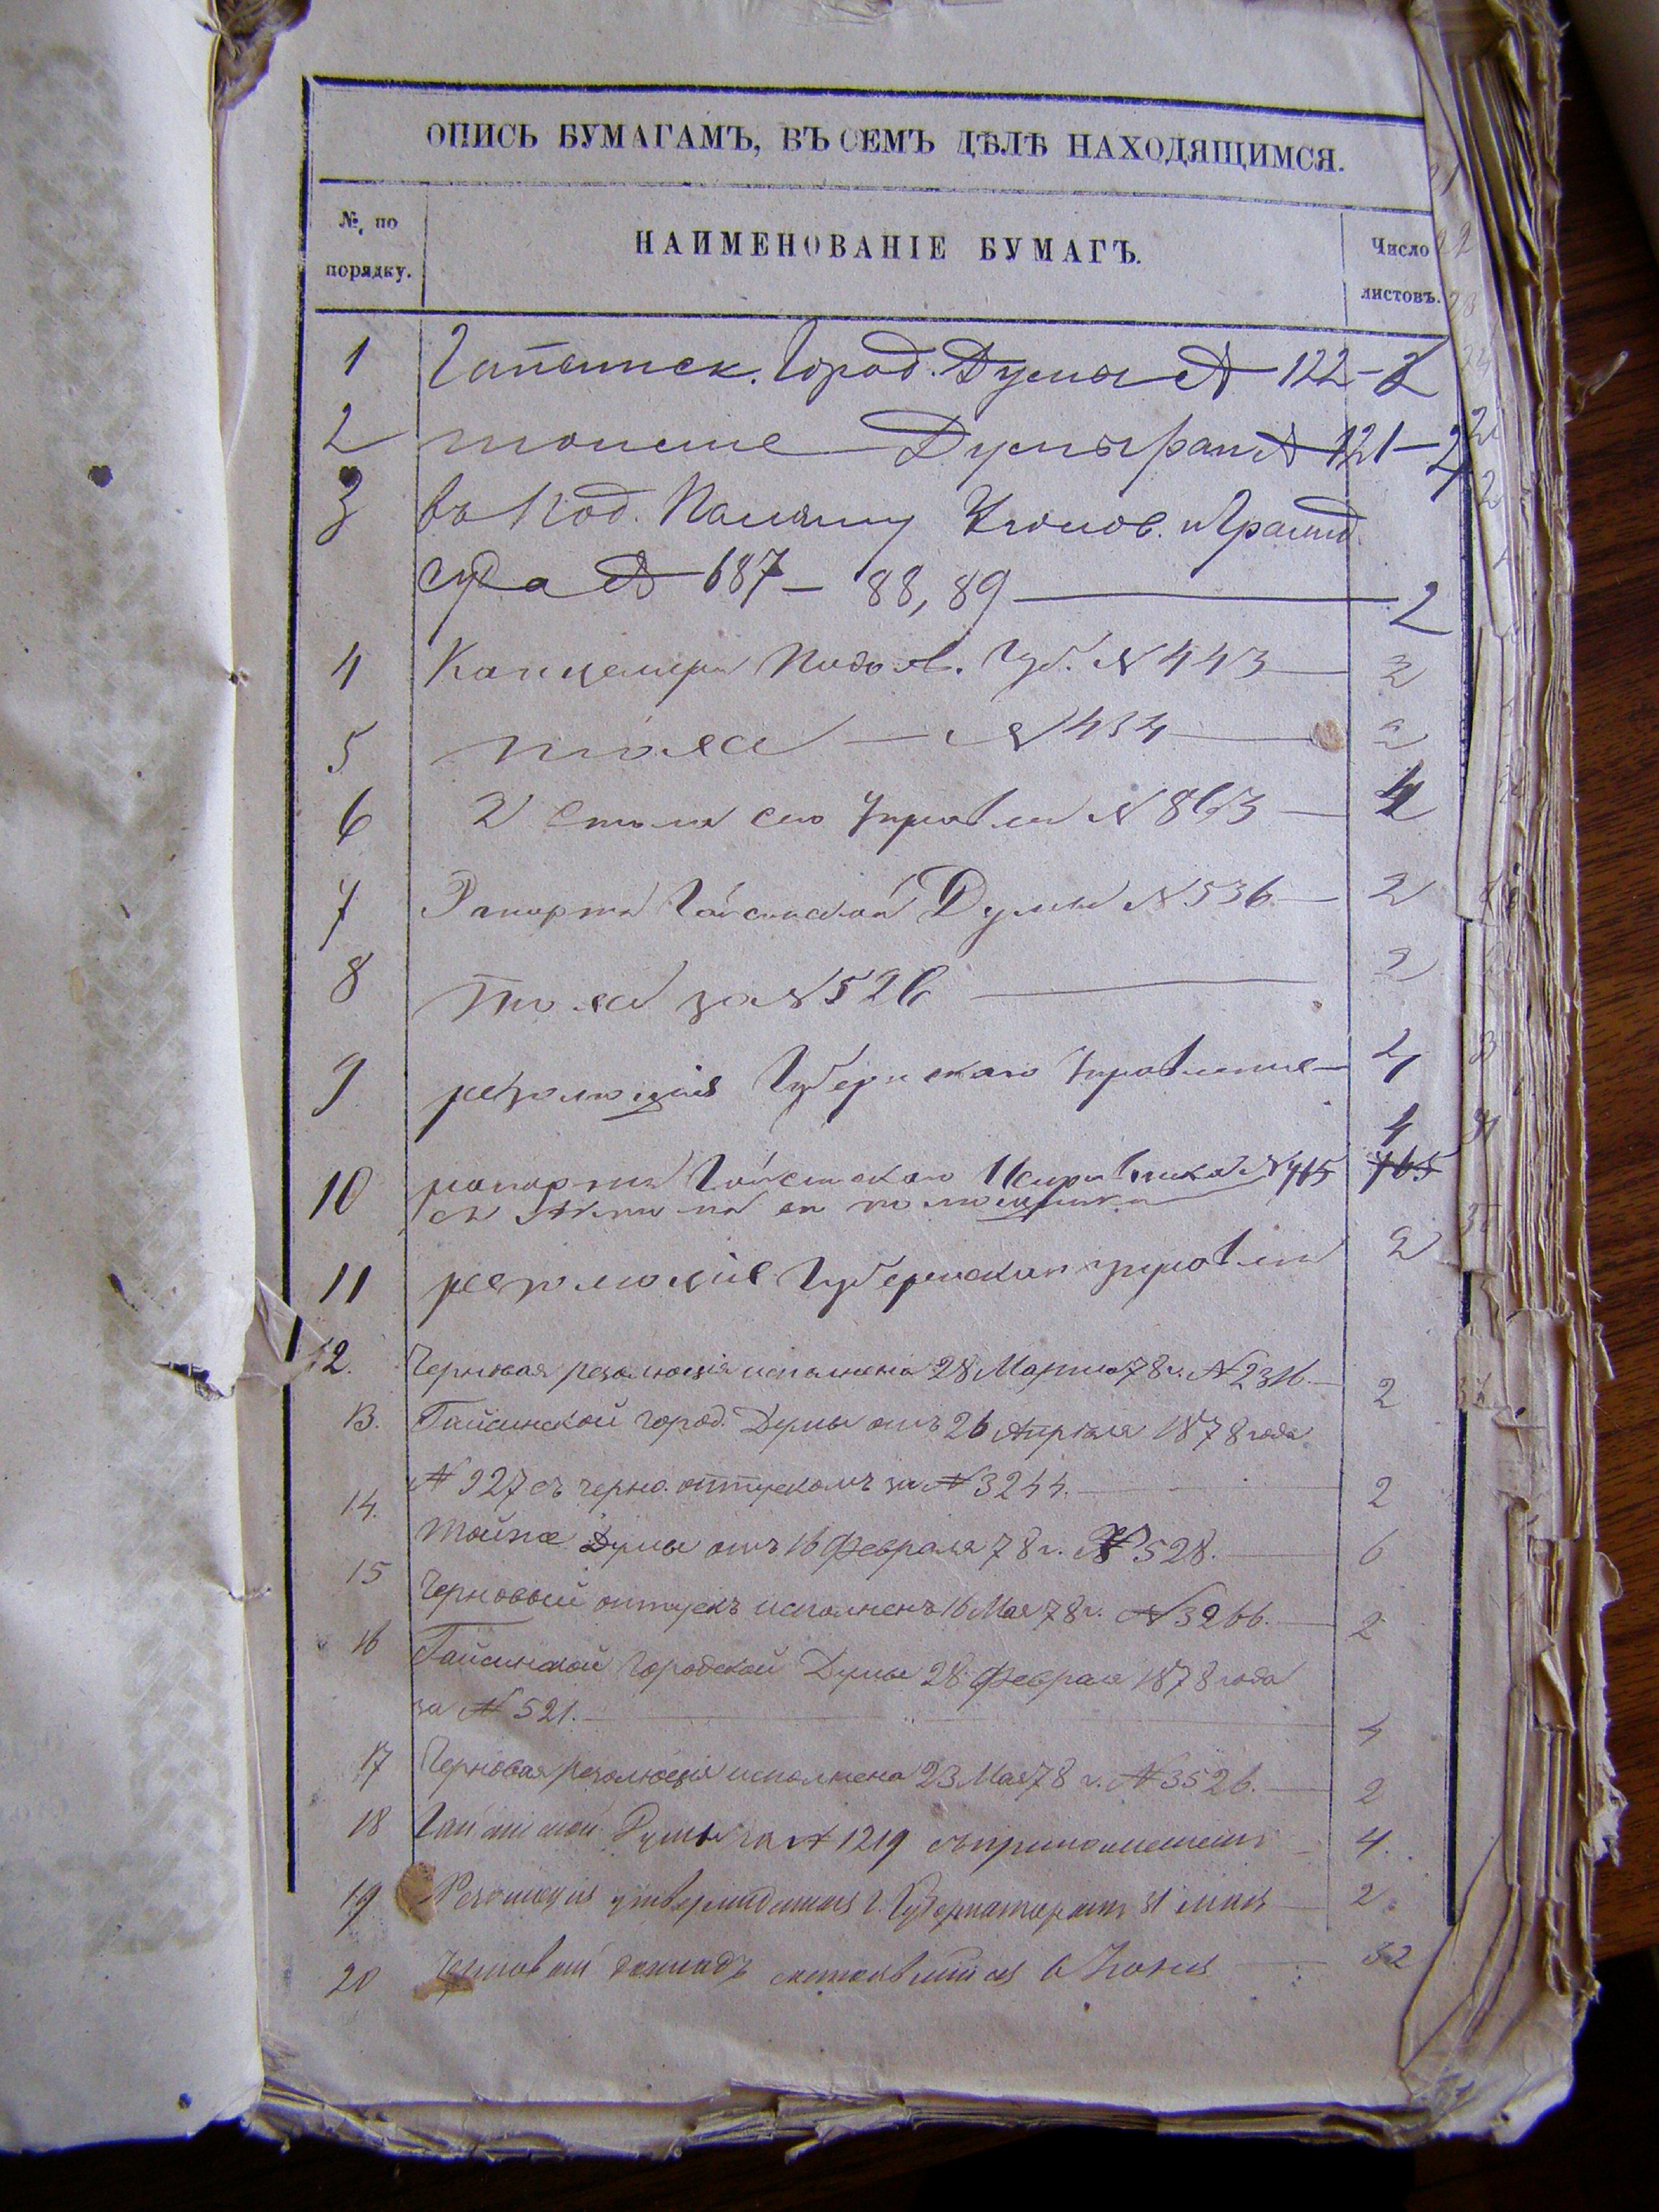 ОПИСЬ БУМАГАМЪ, ВЪ СЕМЪ ДѢЛѢ НАХОДЯЩИМСЯ.
№ по порядку.
НАИМЕНОВАНІЕ БУМАГЪ.
Число листовъ.
1 Гайсинск. Город. Думы № 122 - 2
2 Думы рап № 121 - 2
3 въ Под. Палату Уголов. и Гражд.
суда № 687 - 88, 89 2
4 Канцеляріи Подол. Губ. № 443 2
5 тоже № 434 2
6 2 Стола сего Управлен № 863 4
7 Рапортъ Гайсинской Думы № 536 2
8 тоже за № 526 2
9 резолюція Губернскаго Управленія
10 рапортъ Гайсинскаго Исправника № 765 4
11 резолюціе Губернскаго управлен 2
12. Черновая резолюція исполнена 28 Марта 78 г. № 2316. 2
13. Гайсинской город. Думы отъ 26 Апрѣля 1878 года
№ 927 съ черно. отпускомъ за № 3244. 2
14. Тойже Думы отъ 16 Февраля 78 г. № 528. 6
15 Черновой отпускъ исполненъ 16 Мая 78 г. № 3266. 2
16 Гайсинской Городской Думы 28 Февраля 1878 года
за № 521. 4
17 Черновая резолюція исполнена 23 Мая 78 г. № 3526. 2
18 Гайсинской Думы за № 1219 съ приложеніемъ 4.
19 Резолюція утвержденная г. Губернаторомъ 31 мая 2
20 Черновой докладъ состоявшійся 6 Іюня 32